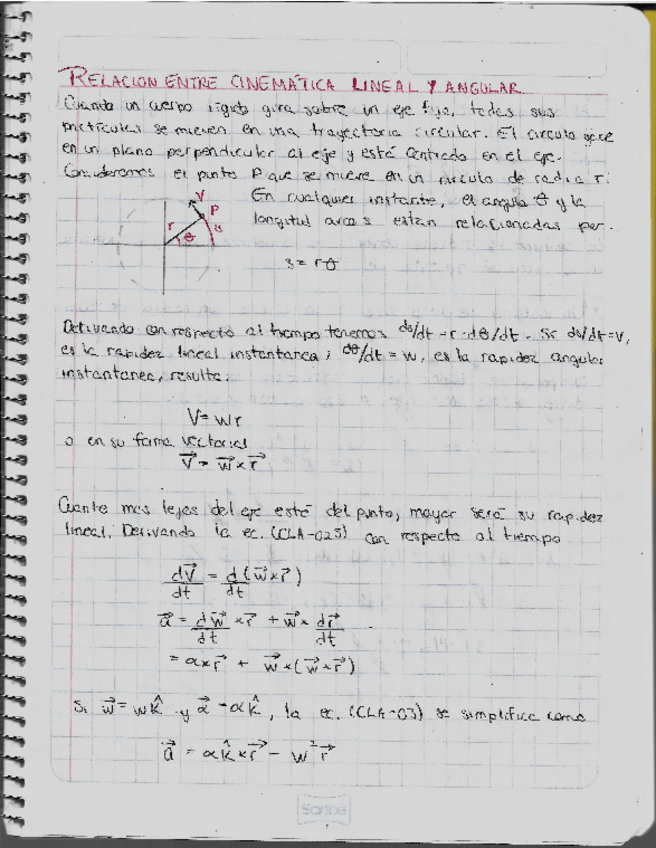 RELACION ENTRE CINEMÁTICA LINEAL Y ANGULAR
Cuando un cuerpo rígido gira sobre un eje fijo, todas sus
partículas se mueven en una trayectoria circular. El círculo yace
en un plano perpendicular al eje y está centrado en el eje.
Consideremos el punto P que se mueve en un círculo de radio r:
V
P
r
s
θ
En cualquier instante, el angulo θ y la
longitud arco s están relacionadas por.
s = rθ
Derivando con respecto al tiempo tenemos ds/dt = r·dθ/dt. Si ds/dt = V,
es la rapidez lineal instantanea; dθ/dt = w, es la rapidez angular
instantanea, resulta:
V = Wr
o en su forma vectorial
V⃗ = w⃗ × r⃗
Cuante mas lejos del eje esté del punto, mayor será su rapidez
lineal. Derivando la ec. (CLA-023) con respecto al tiempo
dV⃗/dt = d/dt (w⃗ × r⃗)
a⃗ = dw⃗/dt × r⃗ + w⃗ × dr⃗/dt
= α × r⃗ + w⃗ × (w⃗ × r⃗)
Si w⃗ = wk̂ y α⃗ = αk̂, la ec. (CLA-03) se simplifica como
a⃗ = αk̂ × r⃗ - w²r⃗
Scribe